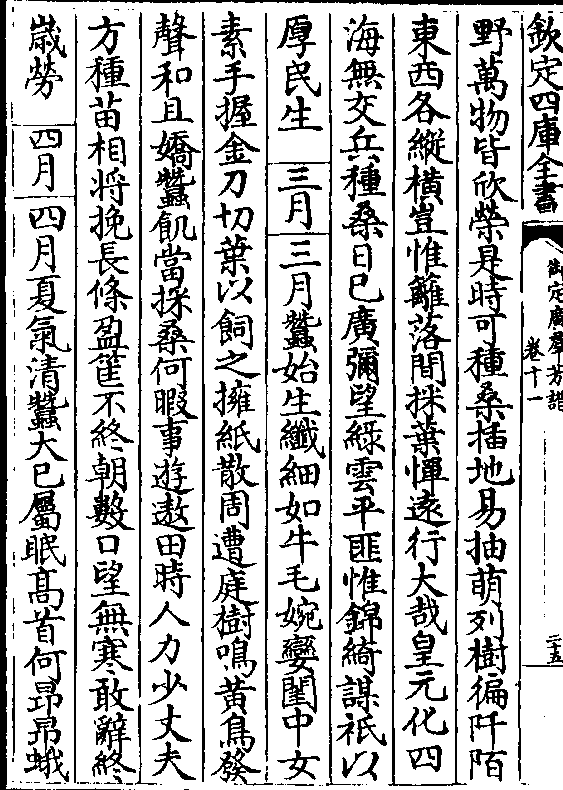 欽定四庫全書
御定廣羣芳譜
卷十一
二十五
野萬物皆欣榮是時可種桑揷地易抽萌列樹徧阡陌
東西各縱橫豈惟籬落間採葉憚逺行大哉皇元化四
海無交兵種桑日已廣彌望綠雲平匪惟錦綺謀祇以
厚民生　三月　三月蠶始生纖細如牛毛婉孌閨中女
素手握金刀切葉以飼之擁紙散周遭庭樹鳴黃鳥發
聲和且嬌蠶飢當採桑何暇事遊遨田時人力少丈夫
方種苗相將挽長條盈筐不終朝數口望無寒敢辭終
歲勞　四月　四月夏氣清蠶大已屬眠髙首何昻昻蛾